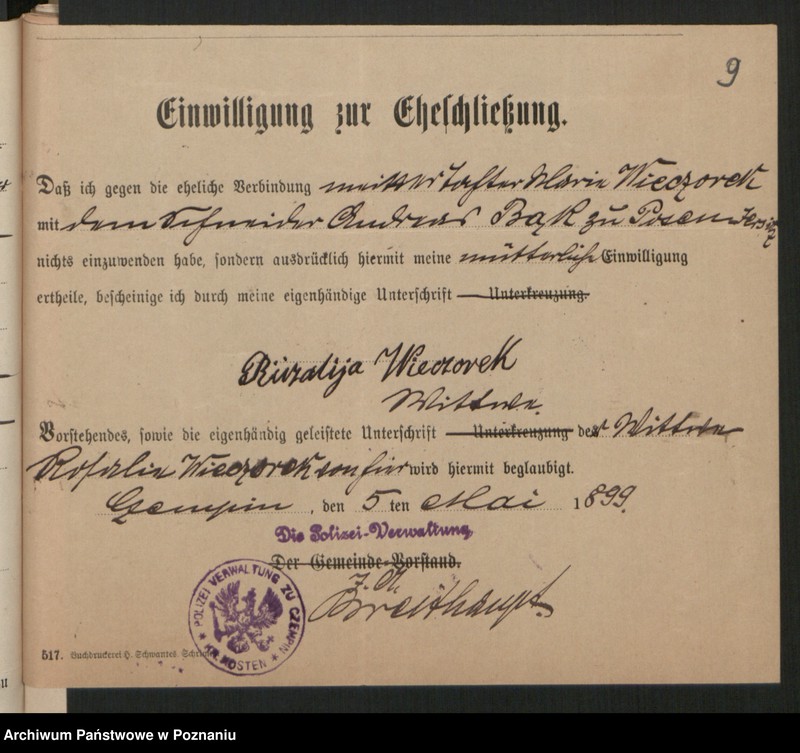 9
Einwilligung zur Eheschließung.
Daß ich gegen die eheliche Verbindung meiner Tochter Marie Wieczorek
mit dem Schneider Andreas Bąk zu Posen Jersitz
nichts einzuwenden habe, sondern ausdrücklich hiermit meine mütterliche Einwilligung
ertheile, bescheinige ich durch meine eigenhändige Unterschrift — Unterkreuzung.
Rüzalija Wieczorek
Wittwe.
Vorstehendes, sowie die eigenhändig geleistete Unterschrift — Unterkreuzung der Wittwe
Rosalie Wieczorek von hier wird hiermit beglaubigt.
Czempin, den 5ten Mai 1899.
Die Polizei-Verwaltung
Der Gemeinde-Vorstand.
J. A.
Breithaupt
POLIZEI VERWALTUNG ZU CZEMPIN * KR. KOSTEN *
517. Buchdruckerei H. Schwantes.
Archiwum Państwowe w Poznaniu